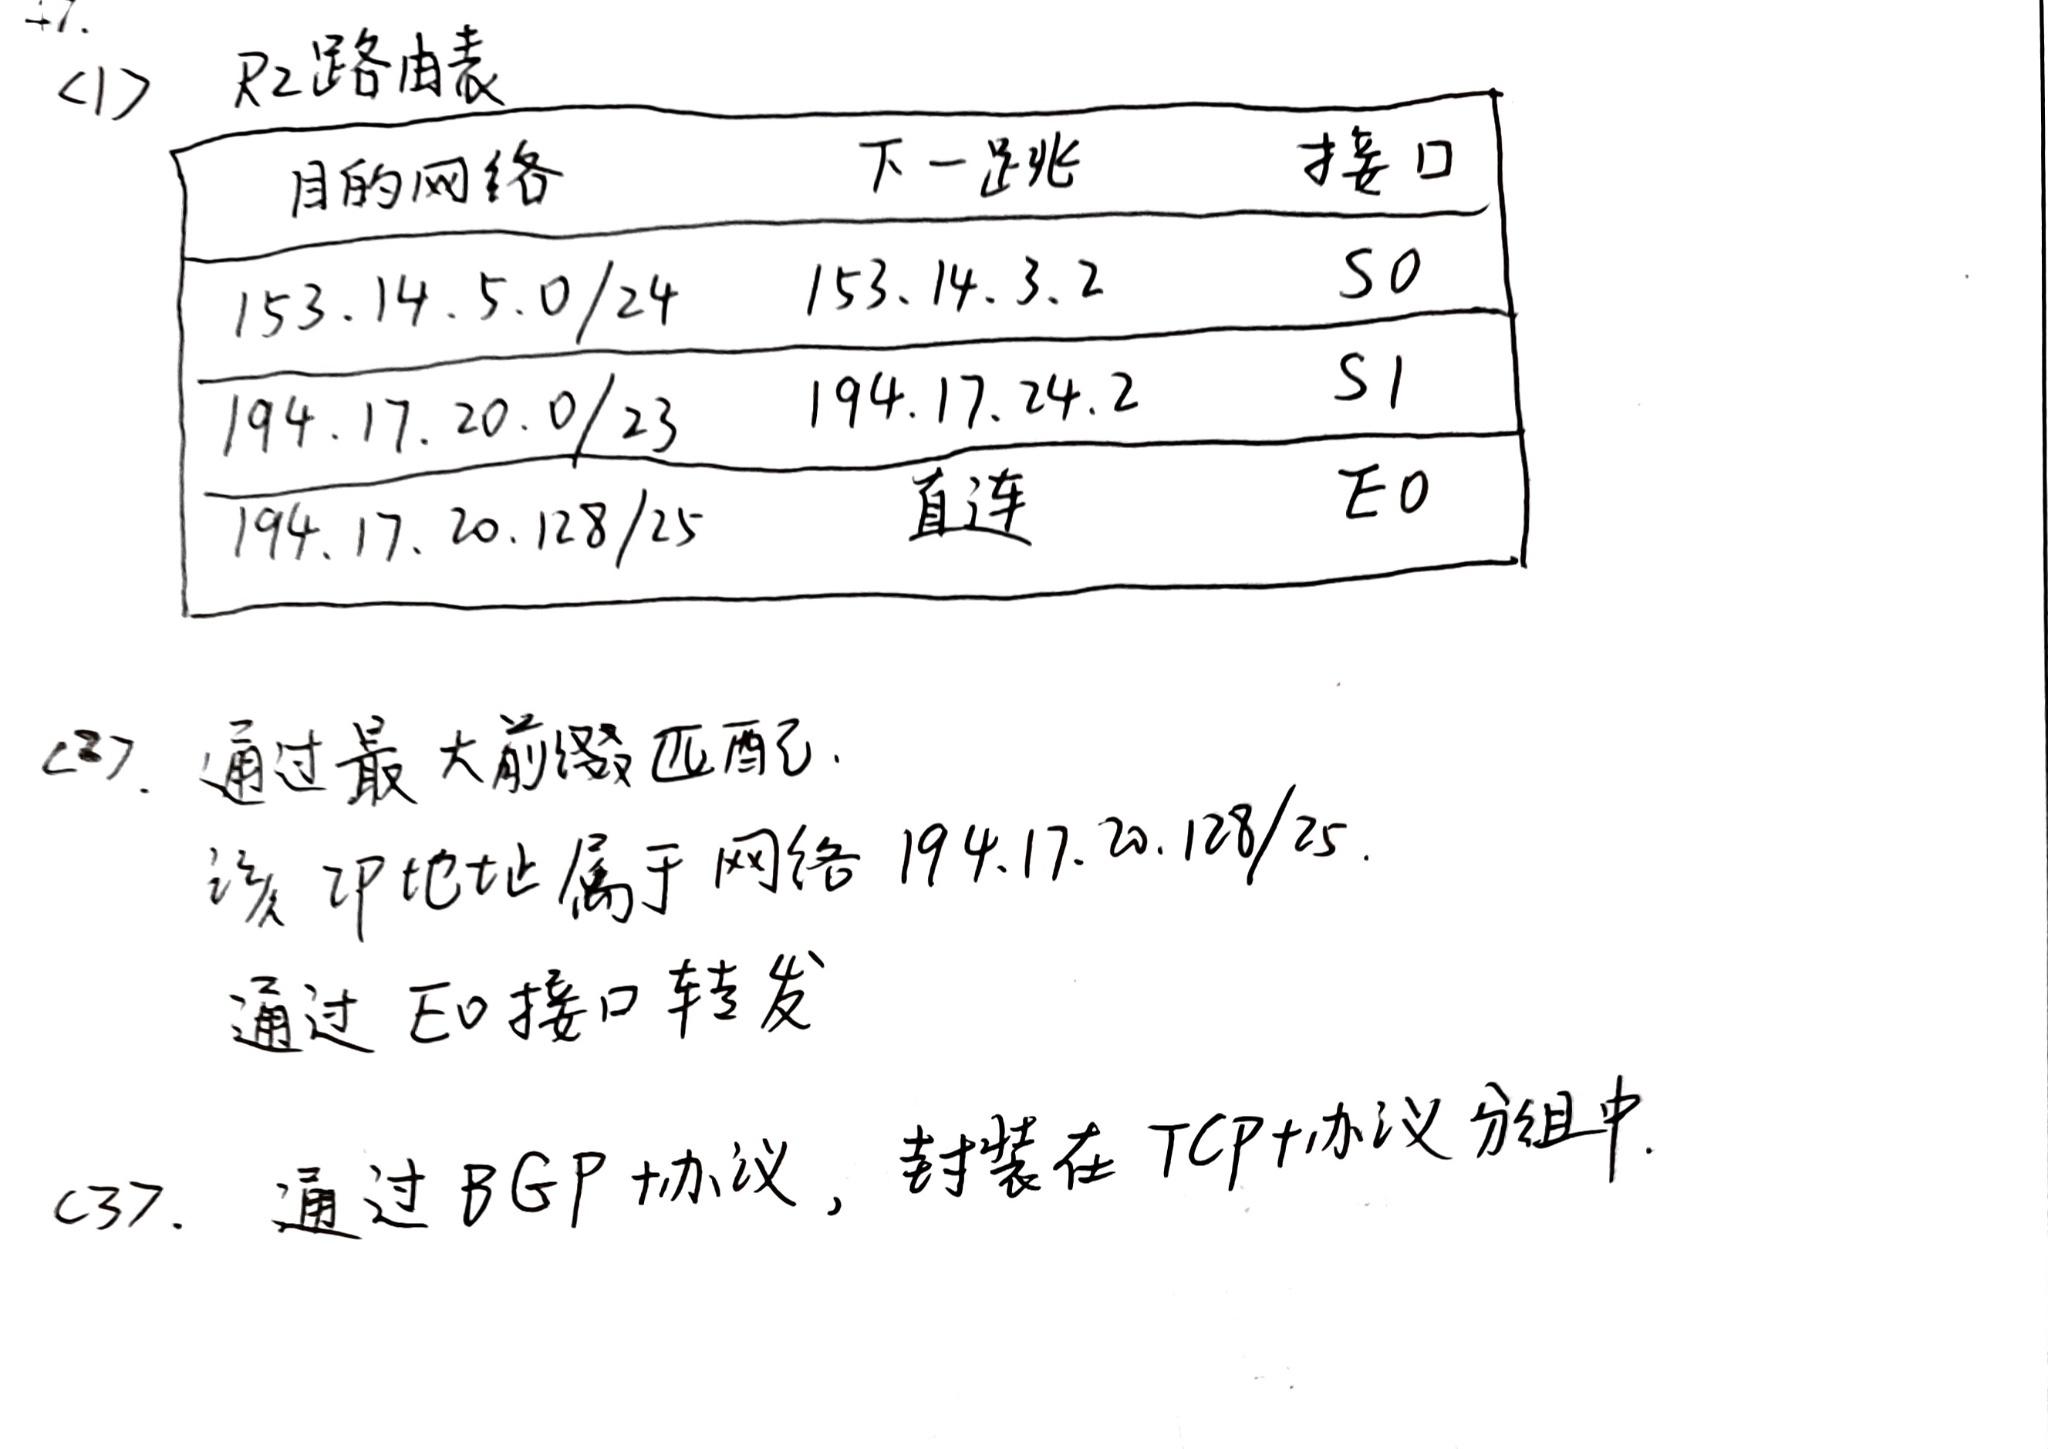 47.
<1> R2路由表
目的网络 下一跳 接口
153.14.5.0/24 153.14.3.2 S0
194.17.20.0/23 194.17.24.2 S1
194.17.20.128/25 直连 E0
<2>. 通过最大前缀匹配.
该IP地址属于网络 194.17.20.128/25.
通过 E0接口转发
<3>. 通过BGP协议, 封装在TCP协议分组中.